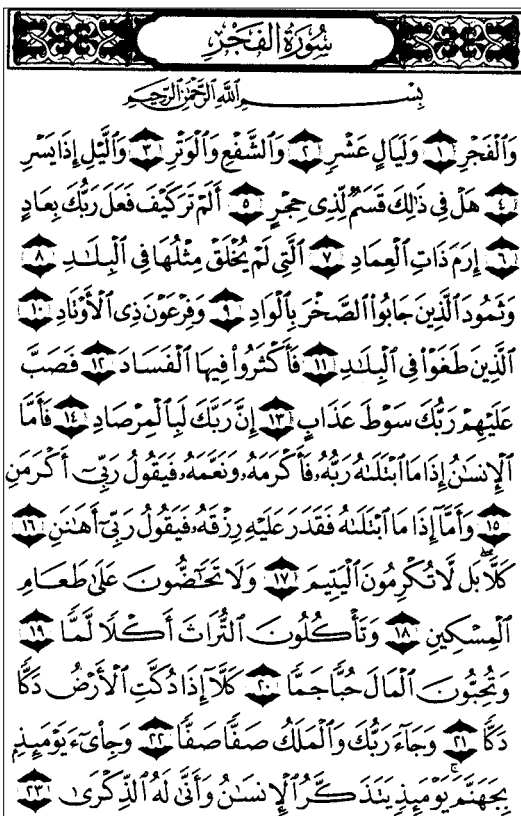 سُورَةُ الفَجْرِ
بِسْمِ ٱللَّهِ ٱلرَّحْمَٰنِ ٱلرَّحِيمِ
وَٱلْفَجْرِ ١ وَلَيَالٍ عَشْرٍ ٢ وَٱلشَّفْعِ وَٱلْوَتْرِ ٣ وَٱلَّيْلِ إِذَا يَسْرِ
٤ هَلْ فِى ذَٰلِكَ قَسَمٌ لِّذِى حِجْرٍ ٥ أَلَمْ تَرَ كَيْفَ فَعَلَ رَبُّكَ بِعَادٍ
٦ إِرَمَ ذَاتِ ٱلْعِمَادِ ٧ ٱلَّتِى لَمْ يُخْلَقْ مِثْلُهَا فِى ٱلْبِلَٰدِ ٨
وَثَمُودَ ٱلَّذِينَ جَابُوا۟ ٱلصَّخْرَ بِٱلْوَادِ ٩ وَفِرْعَوْنَ ذِى ٱلْأَوْتَادِ ١٠
ٱلَّذِينَ طَغَوْا۟ فِى ٱلْبِلَٰدِ ١١ فَأَكْثَرُوا۟ فِيهَا ٱلْفَسَادَ ١٢ فَصَبَّ
عَلَيْهِمْ رَبُّكَ سَوْطَ عَذَابٍ ١٣ إِنَّ رَبَّكَ لَبِٱلْمِرْصَادِ ١٤ فَأَمَّا
ٱلْإِنسَٰنُ إِذَا مَا ٱبْتَلَىٰهُ رَبُّهُۥ فَأَكْرَمَهُۥ وَنَعَّمَهُۥ فَيَقُولُ رَبِّىٓ أَكْرَمَنِ
١٥ وَأَمَّآ إِذَا مَا ٱبْتَلَىٰهُ فَقَدَرَ عَلَيْهِ رِزْقَهُۥ فَيَقُولُ رَبِّىٓ أَهَٰنَنِ ١٦
كَلَّا ۖ بَل لَّا تُكْرِمُونَ ٱلْيَتِيمَ ١٧ وَلَا تَحَٰٓضُّونَ عَلَىٰ طَعَامِ
ٱلْمِسْكِينِ ١٨ وَتَأْكُلُونَ ٱلتُّرَاثَ أَكْلًا لَّمًّا ١٩
وَتُحِبُّونَ ٱلْمَالَ حُبًّا جَمًّا ٢٠ كَلَّآ إِذَا دُكَّتِ ٱلْأَرْضُ دَكًّا
دَكًّا ٢١ وَجَآءَ رَبُّكَ وَٱلْمَلَكُ صَفًّا صَفًّا ٢٢ وَجِا۟ىٓءَ يَوْمَئِذٍۭ
بِجَهَنَّمَ ۚ يَوْمَئِذٍ يَتَذَكَّرُ ٱلْإِنسَٰنُ وَأَنَّىٰ لَهُ ٱلذِّكْرَىٰ ٢٣